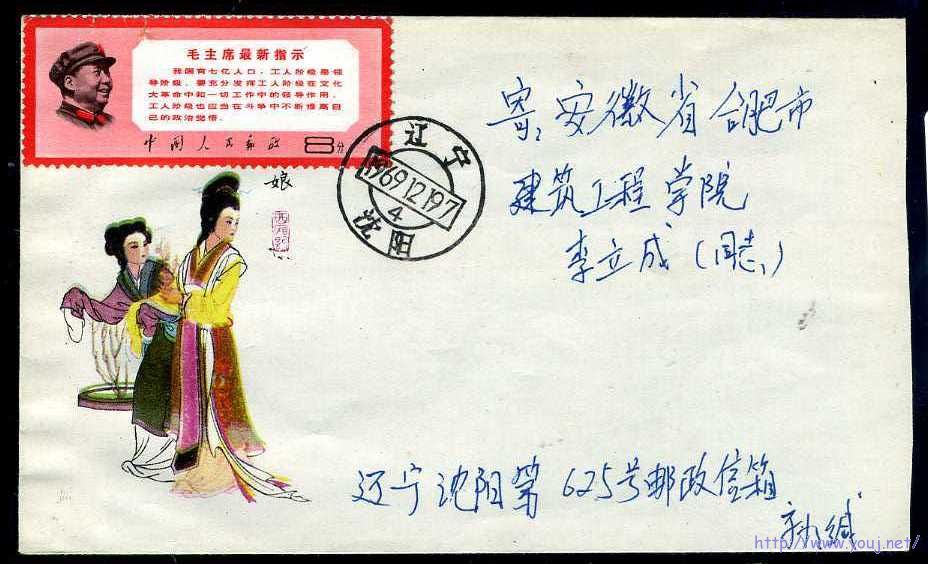 毛主席最新指示
我国有七亿人口，工人阶级是领
导阶级。要充分发挥工人阶级在文化
大革命中和一切工作中的领导作用。
工人阶级也应当在斗争中不断提高自
己的政治觉悟。
中国人民邮政 8分
辽宁
1969.12.19.7
4
沈阳
娘
西厢记
寄：安徽省合肥市
建筑工程学院
李立成（同志）
辽宁沈阳第625号邮政信箱
孙缄
http://www.youj.net/